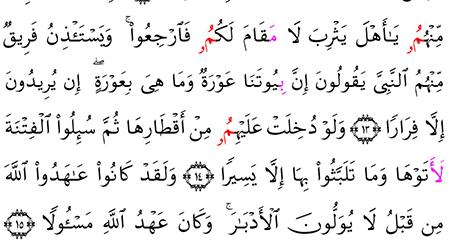 مِّنْهُمُۥ يَـٰٓأَهْلَ يَثْرِبَ لَا مَقَامَ لَكُمُۥ فَٱرْجِعُوا۟ ۚ وَيَسْتَـْٔذِنُ فَرِيقٌ
مِّنْهُمُ ٱلنَّبِىَّ يَقُولُونَ إِنَّ بِيُوتَنَا عَوْرَةٌ وَمَا هِىَ بِعَوْرَةٍ ۖ إِن يُرِيدُونَ
إِلَّا فِرَارًا ﴿١٣﴾ وَلَوْ دُخِلَتْ عَلَيْهِمُۥ مِنْ أَقْطَارِهَا ثُمَّ سُئِلُوا۟ ٱلْفِتْنَةَ
لَأَتَوْهَا وَمَا تَلَبَّثُوا۟ بِهَا إِلَّا يَسِيرًا ﴿١٤﴾ وَلَقَدْ كَانُوا۟ عَـٰهَدُوا۟ ٱللَّهَ
مِن قَبْلُ لَا يُوَلُّونَ ٱلْأَدْبَـٰرَ ۚ وَكَانَ عَهْدُ ٱللَّهِ مَسْـُٔولًا ﴿١٥﴾